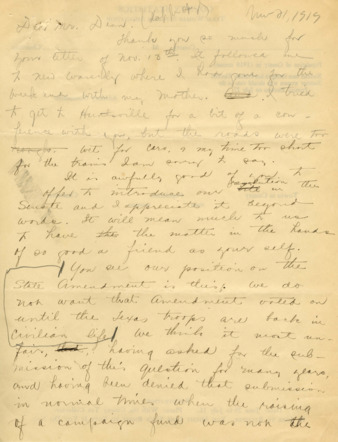 Dear Mr. Dean, Nov 21, 1919
Thank you so much for
your letter of Nov. 13th. It followed me
to New Waverly where I had gone for the
week end with my mother. I tried
to get to Huntsville for a bit of a con-
ference with you, but the roads were too
wet for cars & my time too short
for the train I am sorry to say.
It is awfully good of you to
offer to introduce our in the
Senate and I appreciate it beyond
words. It will mean much to us
to have the matter in the hands
of so good a friend as your self.
You see our position on the
State Amendment is this; we do
not want that Amendment voted on
until the Texas troops are back in
civilian life. We think it most un-
fair, having asked for the sub-
mission of this question for many years,
and having been denied that submission
in normal times when the raising
of a campaign fund was not the